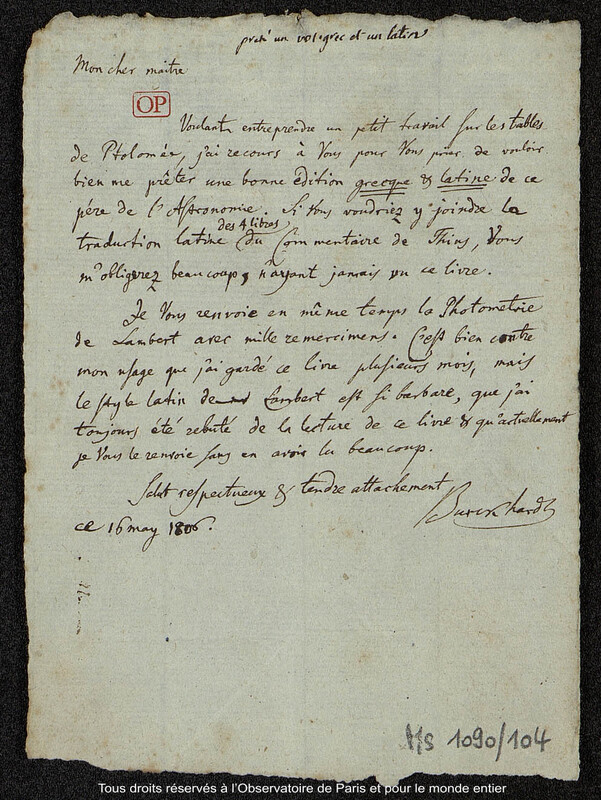 preté un vol. grec et un latin
Mon cher maitre
OP
Voulant entreprendre un petit travail sur les tables
de Ptolomée, j'ai recours à Vous pour Vous prier de vouloir
bien me prêter une bonne édition grecque & latine de ce
père de l'Astronomie. Si Vous voudriez y joindre la
des 4 libros
traduction latine du Commentaire de Théus, Vous
m'obligerez beaucoup, n'ayant jamais vu ce livre.
Je Vous renvoie en même temps la Photometrie
de Lambert avec mille remercimens. C'est bien contre
mon usage que j'ai gardé ce livre plusieurs mois, mais
le style latin de Lambert est si barbare, que j'ai
toujours été rebuté de la lecture de ce livre & qu'actuellement
je Vous le renvoie sans en avoir lu beaucoup.
Salut respectueux & tendre attachement
Burckhardt
ce 16 may 1806.
MS 1090/104
Tous droits réservés à l'Observatoire de Paris et pour le monde entier